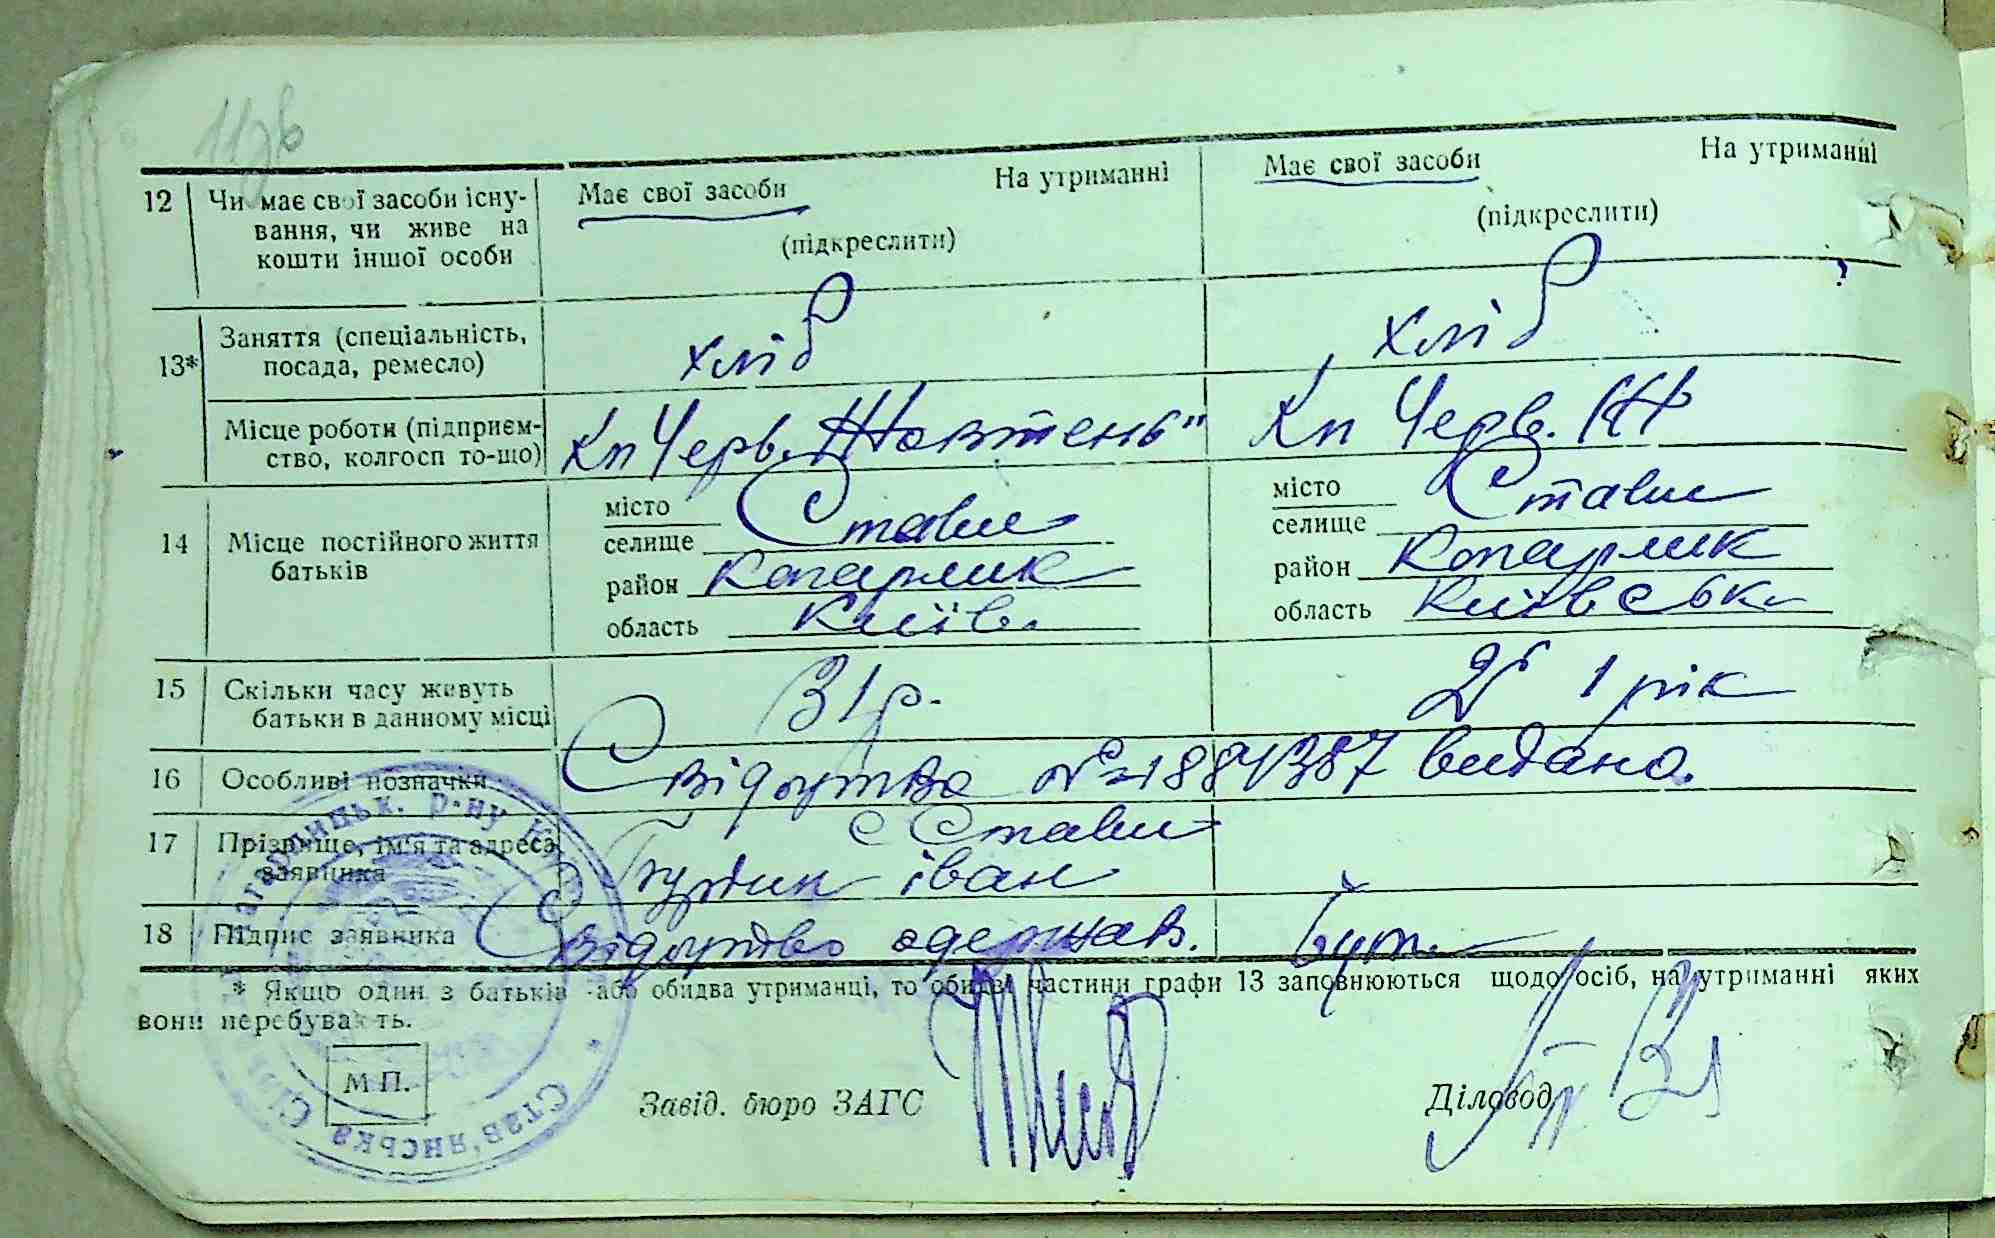 12 Чи має свої засоби існу- Має свої засоби На утриманні Має свої засоби На утриманні
вання, чи живе на (підкреслити) (підкреслити)
кошти іншої особи
13* Заняття (спеціальність, хліб хліб
посада, ремесло)
Місце роботи (підприєм- Кп Черв. Жовтень" Кп Черв.
ство, колгосп то-що)
14 Місце постійного життя батьків
місто Стави місто Стави
селище селище
район Кагарлик район Кагарлик
область Київ. область Київська
15 Скільки часу живуть 31 р. 1 рік
батьки в данному місці
16 Особливі позначки Свідоцтво видано.
17 Прізвище, ім'я та адреса с Стави
заявника іван
18 Підпис заявника Свідоцтво одержав.
* Якщо один з батьків або обидва утриманці, то обидві частини графи 13 заповнюються щодо осіб, на утриманні яких
вони перебувають.
М П.
Завід. бюро ЗАГС Діловод
Став'янська